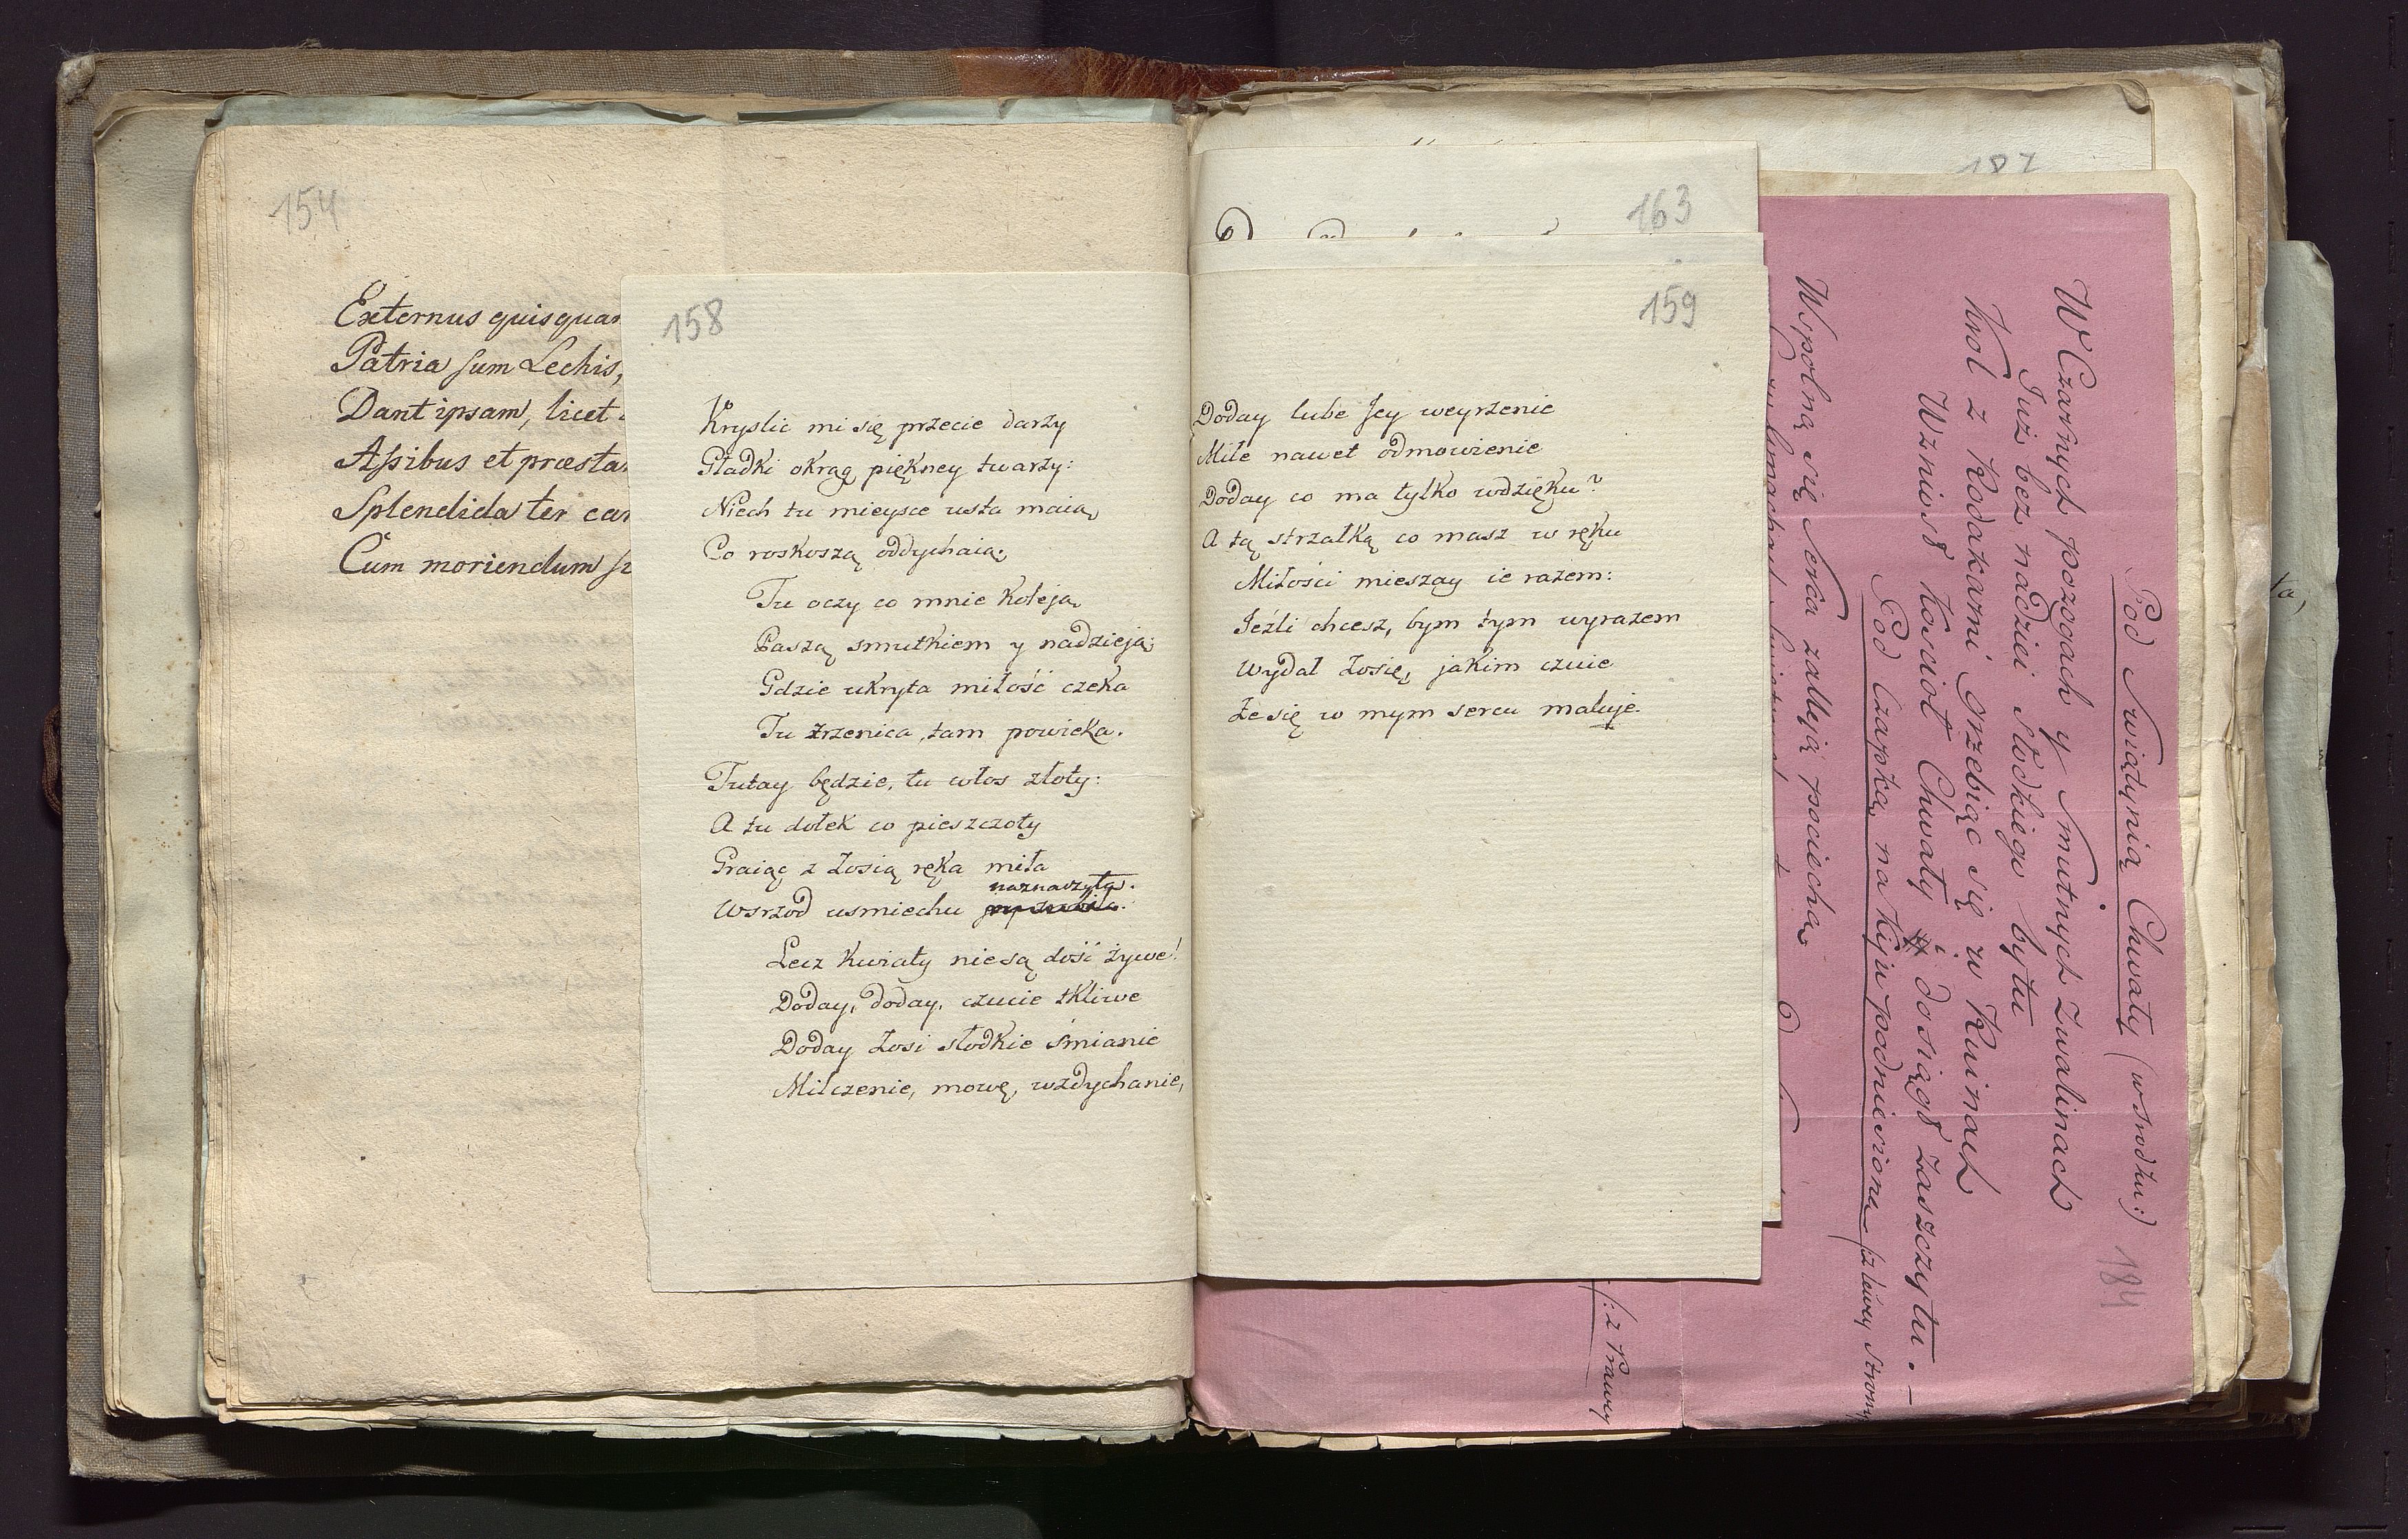 154
Externus quisquam
Patria sum Lechis,
Dant ipsam, licet
Assibus et præsta
Splendida ter car
Cum moriendum
158
Kryslic mi się przecie darzy
Gładki okrąg piękney twarzy:
Niech tu mieysce usta maią,
Co roskoszą oddychaią;
Tu oczy co mnie koleją,
Paszą smutkiem y nadzieją;
Gdzie ukryta miłość czeka
Tu zrzenica, tam powieka.
Tutay będzie, tu włos złoty:
A tu dołek co pieszczoty
Graiąc z Zosią ręka miła
naznaczyła.
Wsrzod usmiechu
Lecz kwiaty niesą dość żywe!
Doday, doday, czucie tkliwe
Doday Zosi słodkie śmianie
Milczenie, mowę, wzdychanie,
163
159
Doday lube Jey weyrzenie
Miłe nawet odmowienie
Doday co ma tylko wdzięku?
A tą strzałką co masz w ręku
Miłości mieszay ie razem:
Jeźli chcesz, bym tym wyrazem
Wydał Zosię, jakim czuie
Że się w mym sercu maluje.
187
184
Pod Swiątynią Chwały (w srodku:)
W Czarnych pozogach y smutnych zwalinach
Już bez nadziei słodkiego bytu
Krol z Rodakami grzebiąc się w Ruinach
Wzniosł Kościoł Chwały i dosiągł zaszczytu. —
Pod Czapką na kiju podniesioną (z lewey strony
Wspolną się serca zalleją pociechą
(: z Prawey
ta,